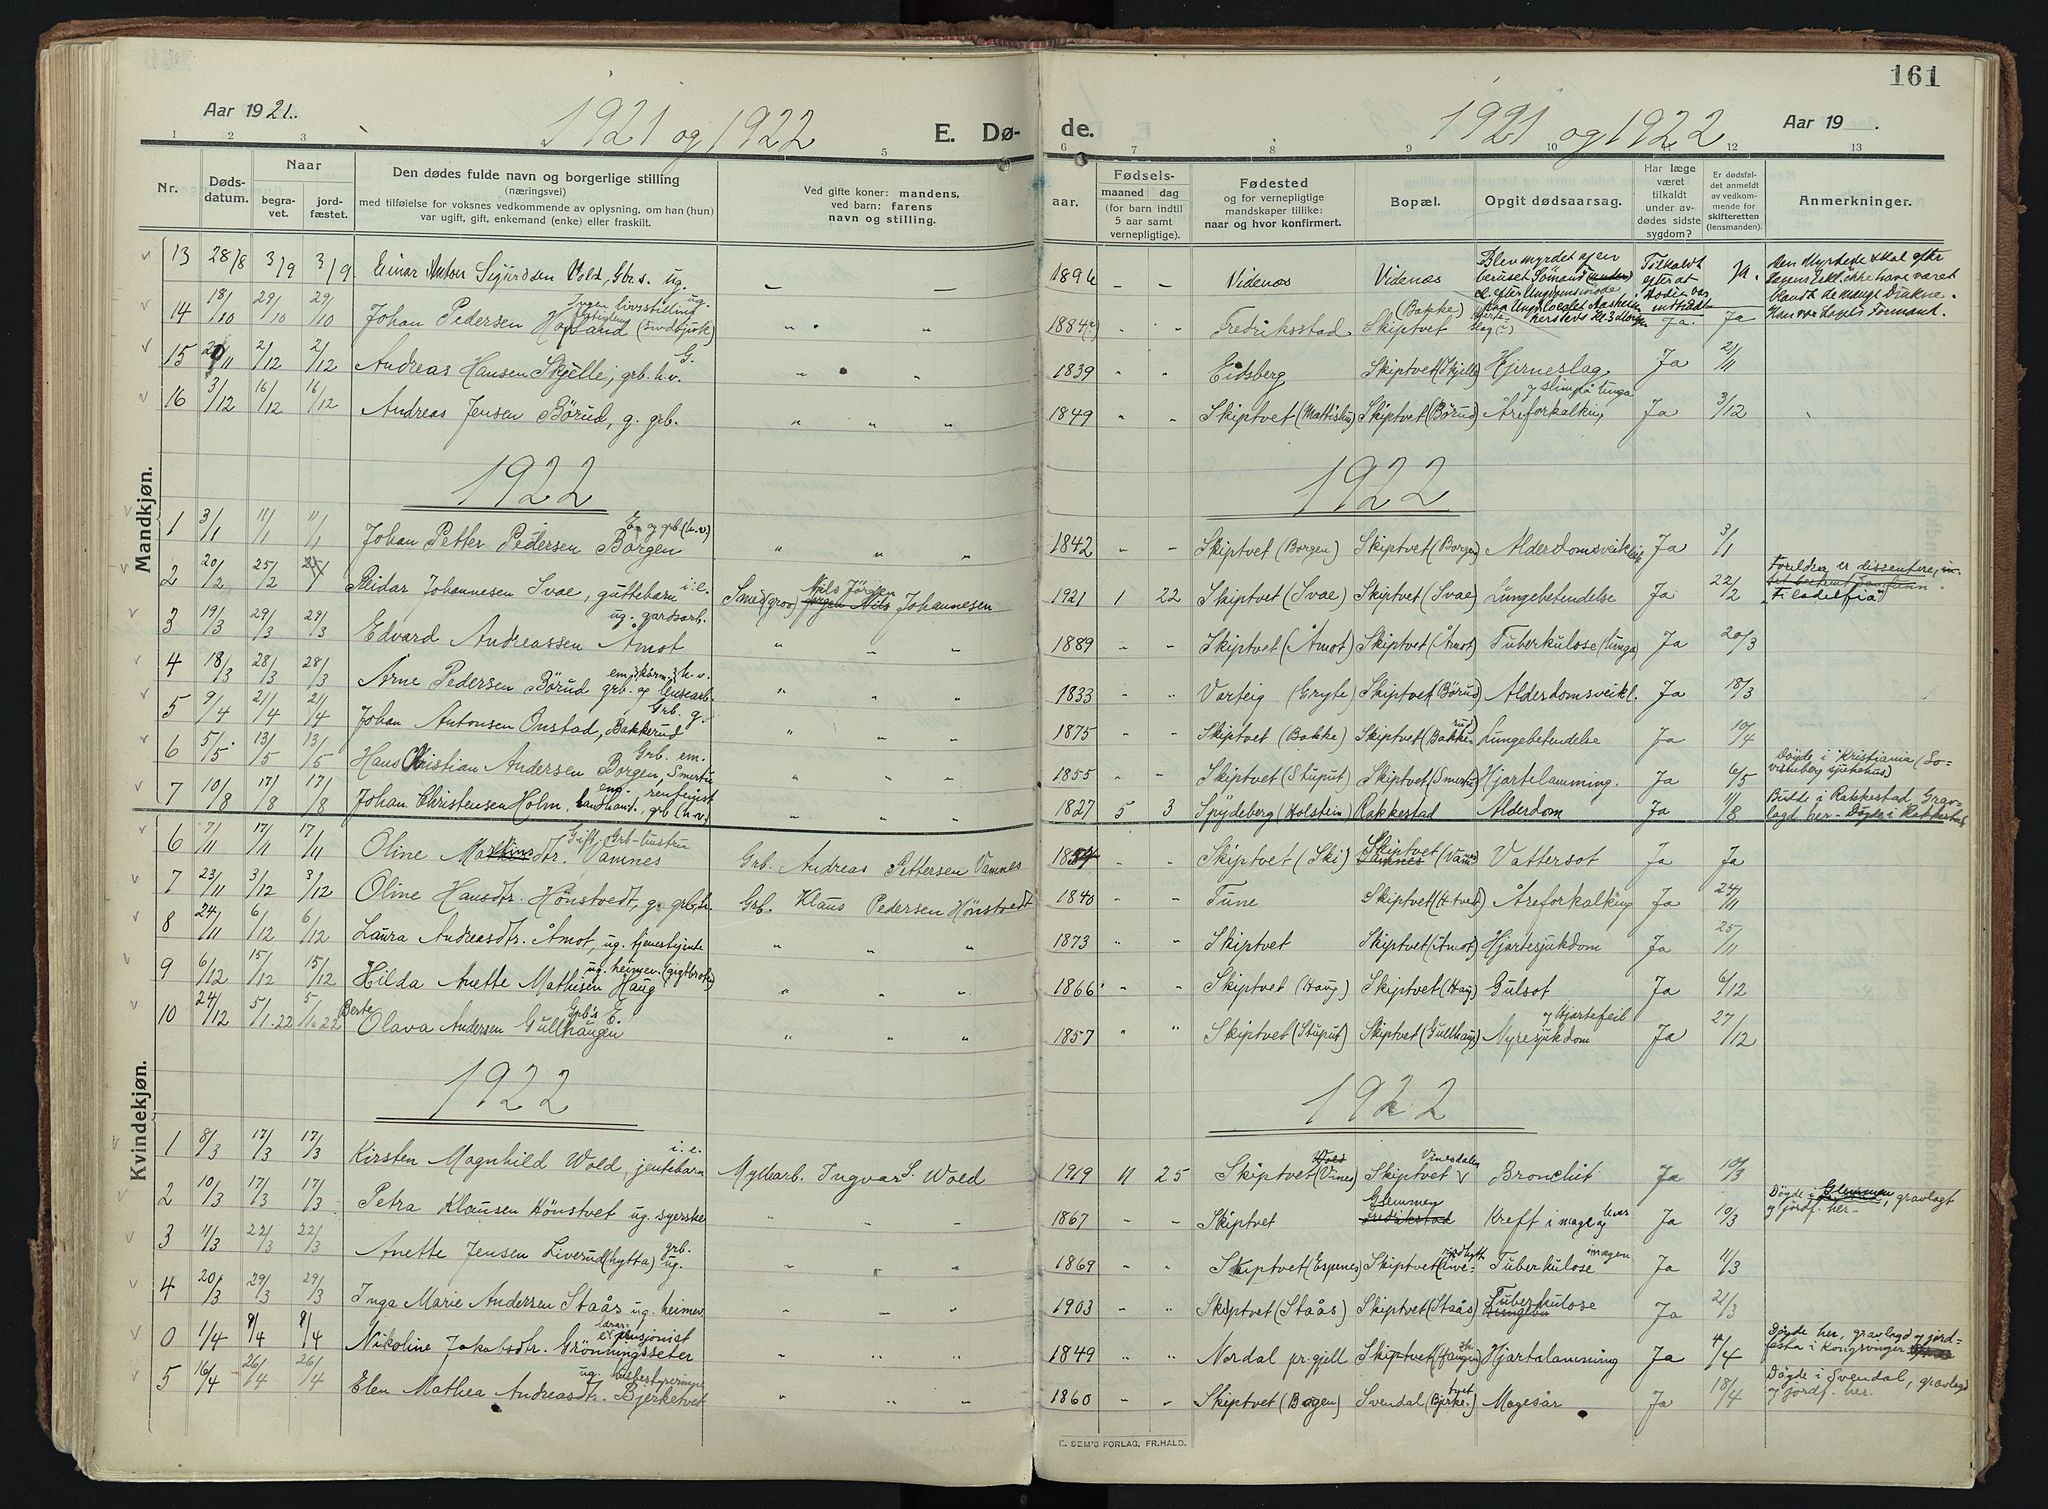 161
Aar 1921.
1921 og 1922
E. Dø-
de.
1921 og 1922
Aar 19 .
1 2 3 4 5 6 7 8 9 10 11 12 13
Nr.
Døds-
datum.
Naar
begra-
vet.
jord-
fæstet.
Den dødes fulde navn og borgerlige stilling
(næringsvei)
med tilføielse for voksnes vedkommende av oplysning, om han (hun)
var ugift, gift, enkemand (enke) eller fraskilt.
Ved gifte koner: mandens,
ved barn: farens
navn og stilling.
Fødsels-
aar.
maaned dag
(for barn indtil
5 aar samt
vernepligtige).
Fødested
og for vernepligtige
mandskaper tillike:
naar og hvor konfirmert.
Bopæl.
Opgit dødsaarsag.
Har læge
været
tilkaldt
under av-
dødes sidste
sygdom?
Er dødsfal-
det anmeldt
av vedkom-
mende for
skifteretten
(lensmanden).
Anmerkninger.
Mandkjøn.
13 28/8 3/9 3/9 Einar Anton Sigurdsen Vold, Gbrs. ug. 1896 Videnæs Videnæs Blev myrdet af en beruset Sømand efter Ungdomsmøde Tilkaldt efter at Døden var indtraadt Ja. Den Myrdede skal efter Sagens ikke have været blandt de mange Drukne. Han var Lagets Formand.
14 18/10 29/10 29/10 Johan Pedersen Hovland ug. Ingen livsstilling (Sindssjuk) 1884 Fredriksstad (Bakke) Skiptvet Hjerteslag (?) Ja. Ja
15 20/11 2/12 2/12 Andreas Hansen Skjelle, grb. h.v. G. 1839 Eidsberg Skiptvet (Skjelle) Hjerneslag Ja 21/11
16 3/12 16/12 16/12 Andreas Jensen Børud, g. grb. 1849 Skiptvet (Mattishus) Skiptvet (Børud) Åreforkalking og slim på lunga Ja 3/12
1922
1922
1 3/1 11/1 11/1 Johan Petter Pedersen Borgen E. og grb (h.v) 1842 Skiptvet (Borgen) Skiptvet (Borgen) Alderdomsveikleik Ja 3/1
2 20/2 25/2 Reidar Johannesen Svae, guttebarn i.e. Smed (grov) Nils Jørgen Johannesen 1921 1 22 Skiptvet (Svae) Skiptvet (Svae) Lungebetendelse Ja 22/2 Foreldra er dissentere, "Filadelfia"
3 19/3 29/3 29/3 Edvard Andreassen Åmot ug. gardsarb. 1889 Skiptvet (Åmot) Skiptvet (Åmot) Tuberkulose (lunga) Ja 20/3
4 18/3 28/3 28/3 Arne Pedersen Børud em. h.v. grb. og lensearb. 1833 Varteig (Gryte) Skiptvet (Børud) Alderdomsveikl. Ja 18/3
5 9/4 21/4 21/4 Johan Antonsen Onstad, Bakkerud Grb. g. 1875 Skiptvet (Bakke) Skiptvet (Bakkerud) Lungebetendelse Ja 10/4
6 5/5 13/5 13/5 Hans Christian Andersen Borgen, Smertu Grb. em. 1855 Skiptvet (Stuput) Skiptvet (Smertu) Hjartelamming. Ja 6/5 Døyde i Kristiania (Lovisenberg sjukehus)
7 10/8 17/8 17/8 Johan Christensen Holm, landhand. em. rentenist grb (h.v.) 1827 5 3 Spydeberg (Holstein) Rakkestad Alderdom Ja 11/8 Budde i Rakkestad. Gravlagd her - Døyde i Rakkestad
Kvindekjøn.
6 7/11 17/11 17/11 Oline Martinsdtr. Vamnes Gift, Grb-hustru Grb. Andreas Pettersen Vamnes 1854 Skiptvet (Ski) Skiptvet (Vamnes) Vattersot Ja Ja
7 23/11 3/12 3/12 Oline Hansdtr. Hønstvedt, g. grb. h. Grb. Klaus Pedersen Hønstvedt 1840 Tune Skiptvet (H-tvedt) Åreforkalking Ja 24/11
8 24/11 6/12 6/12 Laura Andreasdtr. Åmot, ug. tjenestjente 1873 Skiptvet Skiptvet (Åmot) Hjartesjukdom Ja 25/11
9 6/12 15/12 15/12 Hilda Anette Mathisen Haug ug. heimev. (gigtbrott) 1866 Skiptvet (Haug) Skiptvet (Haug) Gulsot Ja 6/12
10 24/12 5/1.22 5/1.22 Berte Olava Andersen Gullhaugen Grb's E. 1857 Skiptvet (Stuput) Skiptvet (Gullhaug) Nyresjukdom og Hjartefeil Ja 27/12
1922
1922
1 8/3 17/3 17/3 Kirsten Magnhild Wold, jentebarn i.e. Myllearb. Ingvar S. Wold 1919 11 25 Skiptvet (Vines) Skiptvet Vinesdalen Bronchit Ja 10/3
2 10/3 17/3 17/3 Petra Klausen Hønstvet ug. syerske 1867 Skiptvet Glemmen Kreft i mage og lever Ja 10/3 Døyde i Glemmen, gravlagt og jordf. her -
3 11/3 22/3 22/3 Anette Jensen Liverud (hytta) grb. ug. 1869 Skiptvet (Espenes) Skiptvet (Liverudhytt) Tuberkulose i magen Ja 11/3
4 20/3 29/3 29/3 Inga Marie Andersen Staås ug. heimev. 1903 Skiptvet (Staås) Skiptvet (Staås) Tuberkulose Ja 21/3
0 1/4 8/4 8/4 Nikoline Jakobsdtr. Grønningsseter pensjonist 1849 Nordal pr.gjell Skiptvet (Haugen) Hjartelamming Ja 4/4 Døyde her, gravlagd og jordfesta i Kongsvinger
5 16/4 26/4 26/4 Elen Mathea Andreasdtr. Bjerketvet ug. husbestyrerinne 1860 Skiptvet (Borgen) Svendal (Bjerketvet) Magesår Ja 18/4 Døyde i Svendal, gravlagd og jordf. her.
E. SEM'S FORLAG, FR.HALD.